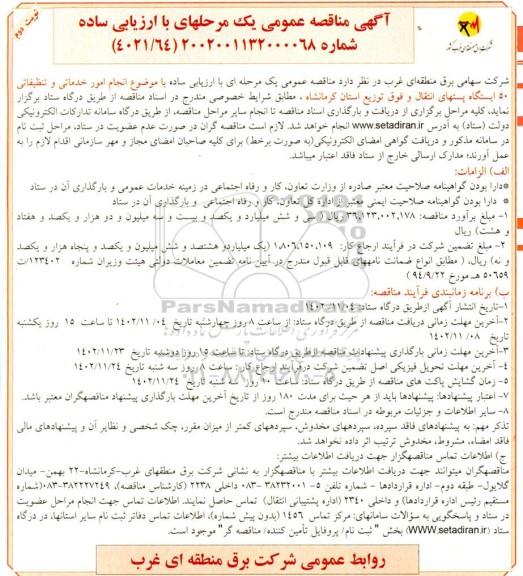 نوبت دوم
آگهی مناقصه عمومی یک مرحله‌ای با ارزیابی ساده
شماره ۲۰۰۲۰۰۱۱۳۲۰۰۰۰۶۸ (۴۰۲۱/۶۴)
شرکت سهامی برق منطقه‌ای غرب در نظر دارد مناقصه عمومی یک مرحله ای با ارزیابی ساده با موضوع انجام امور خدماتی و تنظیفاتی
۵۰ ایستگاه پستهای انتقال و فوق توزیع استان کرمانشاه ، مطابق شرایط خصوصی مندرج در اسناد مناقصه از طریق درگاه ستاد برگزار
نماید، کلیه مراحل برگزاری از دریافت و بارگذاری اسناد مناقصه تا انجام سایر مراحل مناقصه، از طریق درگاه سامانه تدارکات الکترونیکی
دولت (ستاد) به آدرس www.setadiran.ir انجام خواهد شد. لازم است مناقصه گران در صورت عدم عضویت در ستاد، مراحل ثبت نام
در سامانه مذکور و دریافت گواهی امضای الکترونیکی(به صورت برخط) برای کلیه صاحبان امضای مجاز و مهر سازمانی اقدام لازم را به
عمل آورند؛ مدارک ارسالی خارج از ستاد فاقد اعتبار میباشد.
الف) الزامات:
*دارا بودن گواهینامه صلاحیت معتبر صادره از وزارت تعاون، کار و رفاه اجتماعی در زمینه خدمات عمومی و بارگذاری آن در ستاد
* دارا بودن گواهینامه صلاحیت ایمنی معتبر از اداره کل تعاون، کار و رفاه اجتماعی و بارگذاری آن در ستاد
۱- مبلغ برآورد مناقصه: ۳۶،۱۲۳،۰۰۲،۱۷۸ ریال (سی و شش میلیارد و یکصد و بیست و سه میلیون و دو هزار و یکصد و هفتاد
و هشت) ریال
۲- مبلغ تضمین شرکت در فرآیند ارجاع کار: ۱،۸۰۶،۱۵۰،۱۰۹ (یک میلیاردو هشتصد و شش میلیون و یکصد و پنجاه هزار و یکصد
و نه) ریال، ( مطابق انواع ضمانت نامههای قابل قبول مندرج در آیین نامه تضمین معاملات دولتی هیئت وزیران شماره ۱۲۳۴۰۲/ت
۵۰۶۵۹ هـ مورخ ۹۴/۹/۲۲ )
ب) برنامه زمانبندی فرآیند مناقصه:
۱-تاریخ انتشار آگهی ازطریق درگاه ستاد: ۱۴۰۲/۱۱/۰۴
۲-آخرین مهلت زمانی دریافت مناقصه از طریق درگاه ستاد: از ساعت ۸ روز چهارشنبه تاریخ ۱۴۰۲/۱۱/۰۴ تا ساعت ۱۵ روز یکشنبه
تاریخ ۱۴۰۲/۱۱/۰۸
۳-آخرین مهلت زمانی بارگذاری پیشنهادات مناقصه ازطریق درگاه ستاد: تا ساعت ۱۵ روز دوشنبه تاریخ ۱۴۰۲/۱۱/۲۳
۴-آخرین مهلت تحویل فیزیکی اصل تضمین شرکت درفرآیند ارجاع کار: ساعت ۸ روز سه شنبه تاریخ ۱۴۰۲/۱۱/۲۴
۵- زمان گشایش پاکت های مناقصه از طریق درگاه ستاد: ساعت ۱۰ روز سه شنبه تاریخ ۱۴۰۲/۱۱/۲۴
۷- اعتبار پیشنهادها: پیشنهادها باید از هر حیث برای مدت ۱۸۰ روز از تاریخ آخرین مهلت بارگذاری پیشنهاد مناقصهگران معتبر باشد.
۸- سایر اطلاعات و جزئیات مربوطه در اسناد مناقصه مندرج است.
تذکر مهم: به پیشنهادهای فاقد سپرده، سپردههای مخدوش، سپردههای کمتر از میزان مقرر، چک شخصی و نظایر آن و پیشنهادهای مالی
فاقد امضاء، مشروط، مخدوش ترتیب اثر داده نخواهد شد.
ج) اطلاعات تماس مناقصهگزار جهت دریافت اطلاعات بیشتر:
مناقصهگران میتوانند جهت دریافت اطلاعات بیشتر با مناقصهگزار به نشانی شرکت برق منطقهای غرب-کرمانشاه-۲۲ بهمن- میدان
گلایول- طبقه دوم- اداره قراردادها - شماره تلفن ۵- ۳۸۲۳۲۰۰۱ -۰۸۳ داخلی ۲۲۳۸ (کارشناس مناقصه)، ۳۸۲۲۲۷۲۴۹-۰۸۳(شماره
مستقیم رئیس اداره قراردادها) و داخلی ۲۳۴۰ (اداره پشتیبانی انتقال) تماس حاصل نمایند. اطلاعات تماس جهت انجام مراحل عضویت
در ستاد و پاسخگویی به سؤالات سامانهای: مرکز تماس ۱۴۵۶ (بدون پیش شماره)، اطلاعات تماس دفاتر ثبت نام سایر استانها، در درگاه
ستاد (www.setadiran.ir) بخش " ثبت نام/ پروفایل تأمین کننده/ مناقصه گر" موجود است.
روابط عمومی شرکت برق منطقه ای غرب